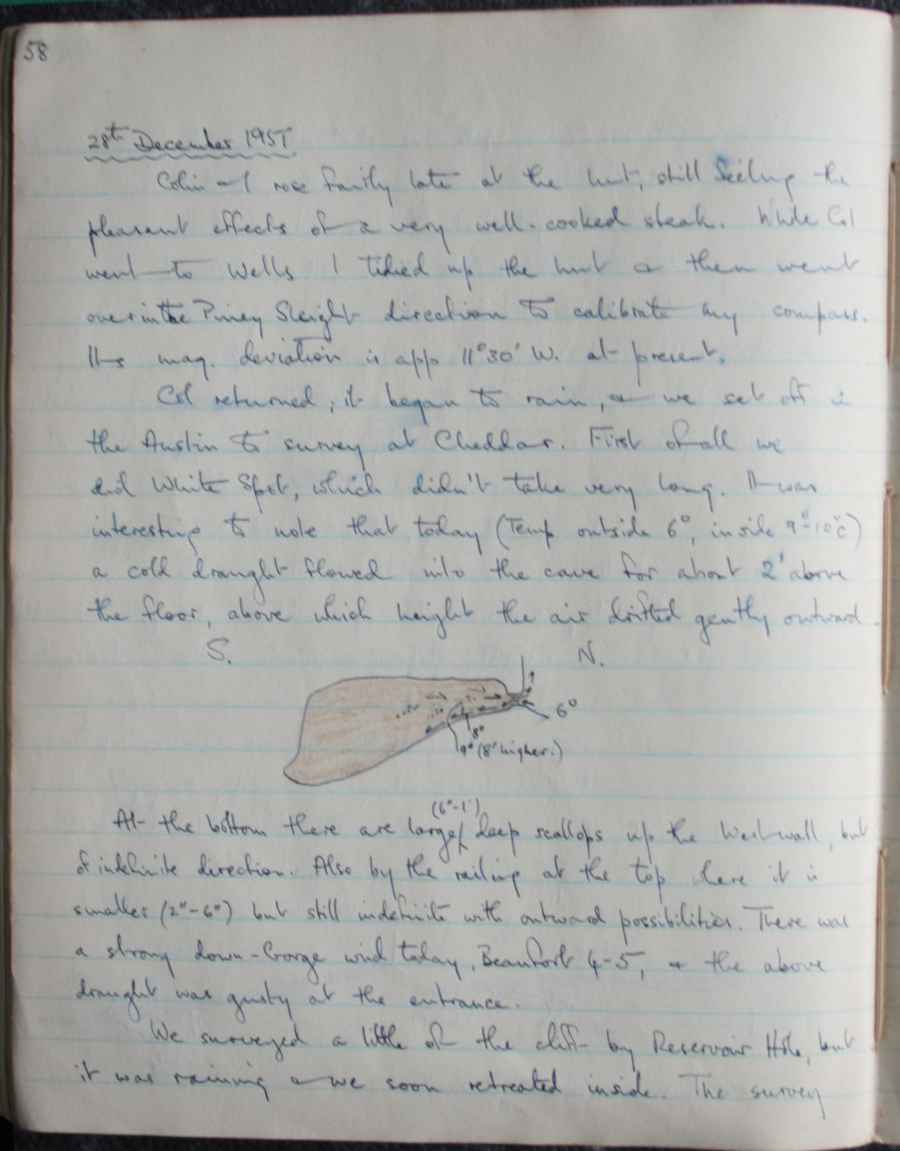 58
28th December 1957
Colin & I rose fairly late at the hut, still feeling the
pleasant effects of a very well-cooked steak. While Col
went to Wells I tidied up the hut & then went
over in the Piney Sleight direction to calibrate my compass.
Its mag. deviation is app 11°30' W. at present.
Col returned; it began to rain, & we set off in
the Austin to survey at Cheddar. First of all we
did White Spot, which didn't take very long. It was
interesting to note that today (Temp outside 6°, inside 9°-10°C)
a cold draught flowed into the cave for about 2' above
the floor, above which height the air drifted gently outward.
S. N.
6°
8°
9° (8' higher.)
(6"-1')
At the bottom there are large, deep scallops up the West wall, but
of indefinite direction. Also by the railing at the top here it is
smaller (2"-6") but still indefinite with outward possibilities. There was
a strong down-Gorge wind today, Beaufort 4-5, & the above
draught was gusty at the entrance.
We surveyed a little of the cliff by Reservoir Hole, but
it was raining & we soon retreated inside. The survey